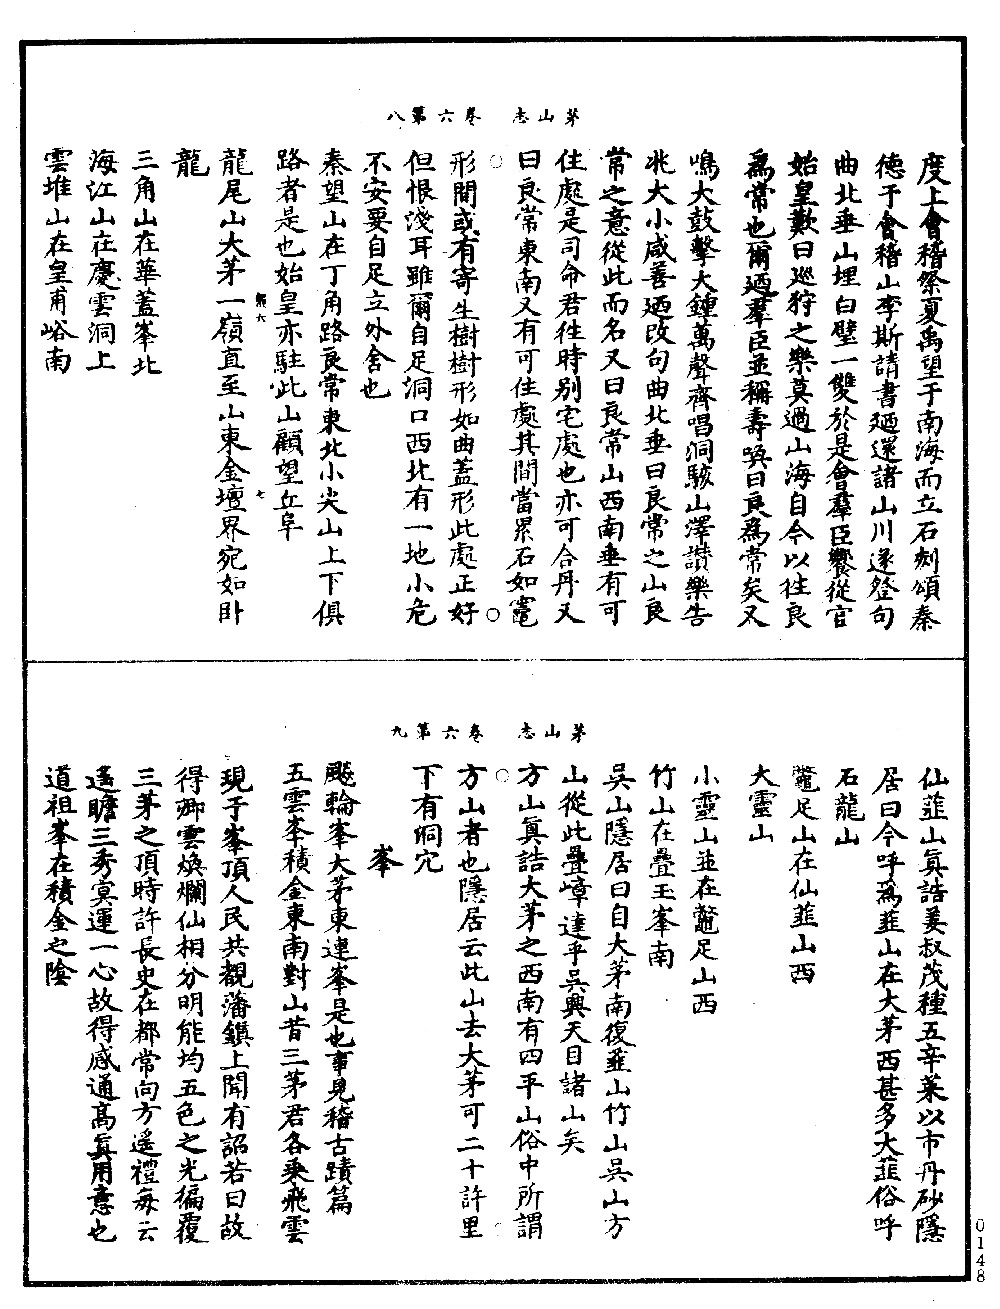 茅山志　卷六第八
度上會稽祭夏禹望于南海而立石刻頌秦
德于會稽山李斯請書廼還諸山川遂登句
曲北垂山埋白璧一雙於是會羣臣饗從官
始皇歎曰巡狩之樂莫過山海自今以往良
爲常也爾廼羣臣並稱壽喚曰良爲常矣又
鳴大鼓擊大鍾萬聲齊唱洞駭山澤讃樂吿
兆大小咸善廼改句曲北垂曰良常之山良
常之意從此而名又曰良常山西南垂有可
住處是司命君往時别宅處也亦可合丹又
曰良常東南又有可住處其間當累石如竈
形間或有寄生樹樹形如曲蓋形此處正好
但恨淺耳雖爾自足洞口西北有一地小危
不安要自足立外舍也
秦望山在丁角路良常東北小尖山上下俱
路者是也始皇亦駐此山顧望丘阜
龍尾山大茅一嶺直至山東金壇界宛如卧
龍
三角山在華蓋峯北
海江山在慶雲洞上
雲堆山在皇甫峪南
茅山志　卷六第九
仙韮山眞誥姜叔茂種五辛菜以市丹砂隱
居曰今呼爲韮山在大茅西甚多大韮俗呼
石龍山
鼈足山在仙韮山西
大靈山
小靈山並在鼈足山西
竹山在疊玉峯南
吳山隱居曰自大茅南復韮山竹山吳山方
山從此疊嶂達乎吳興天目諸山矣
方山眞誥大茅之西南有四平山俗中所謂
方山者也隱居云此山去大茅可二十許里
下有洞穴
峯
飈輪峯大茅東連峯是也事見稽古蹟篇
五雲峯積金東南對山昔三茅君各乘飛雲
現于峯頂人民共覩藩鎭上聞有詔若曰故
得卿雲煥爛仙相分明能均五色之光徧覆
三茅之頂時許長史在都常向方遥禮每云
遥瞻三秀㝠運一心故得感通髙眞用意也
道祖峯在積金之陰
0148